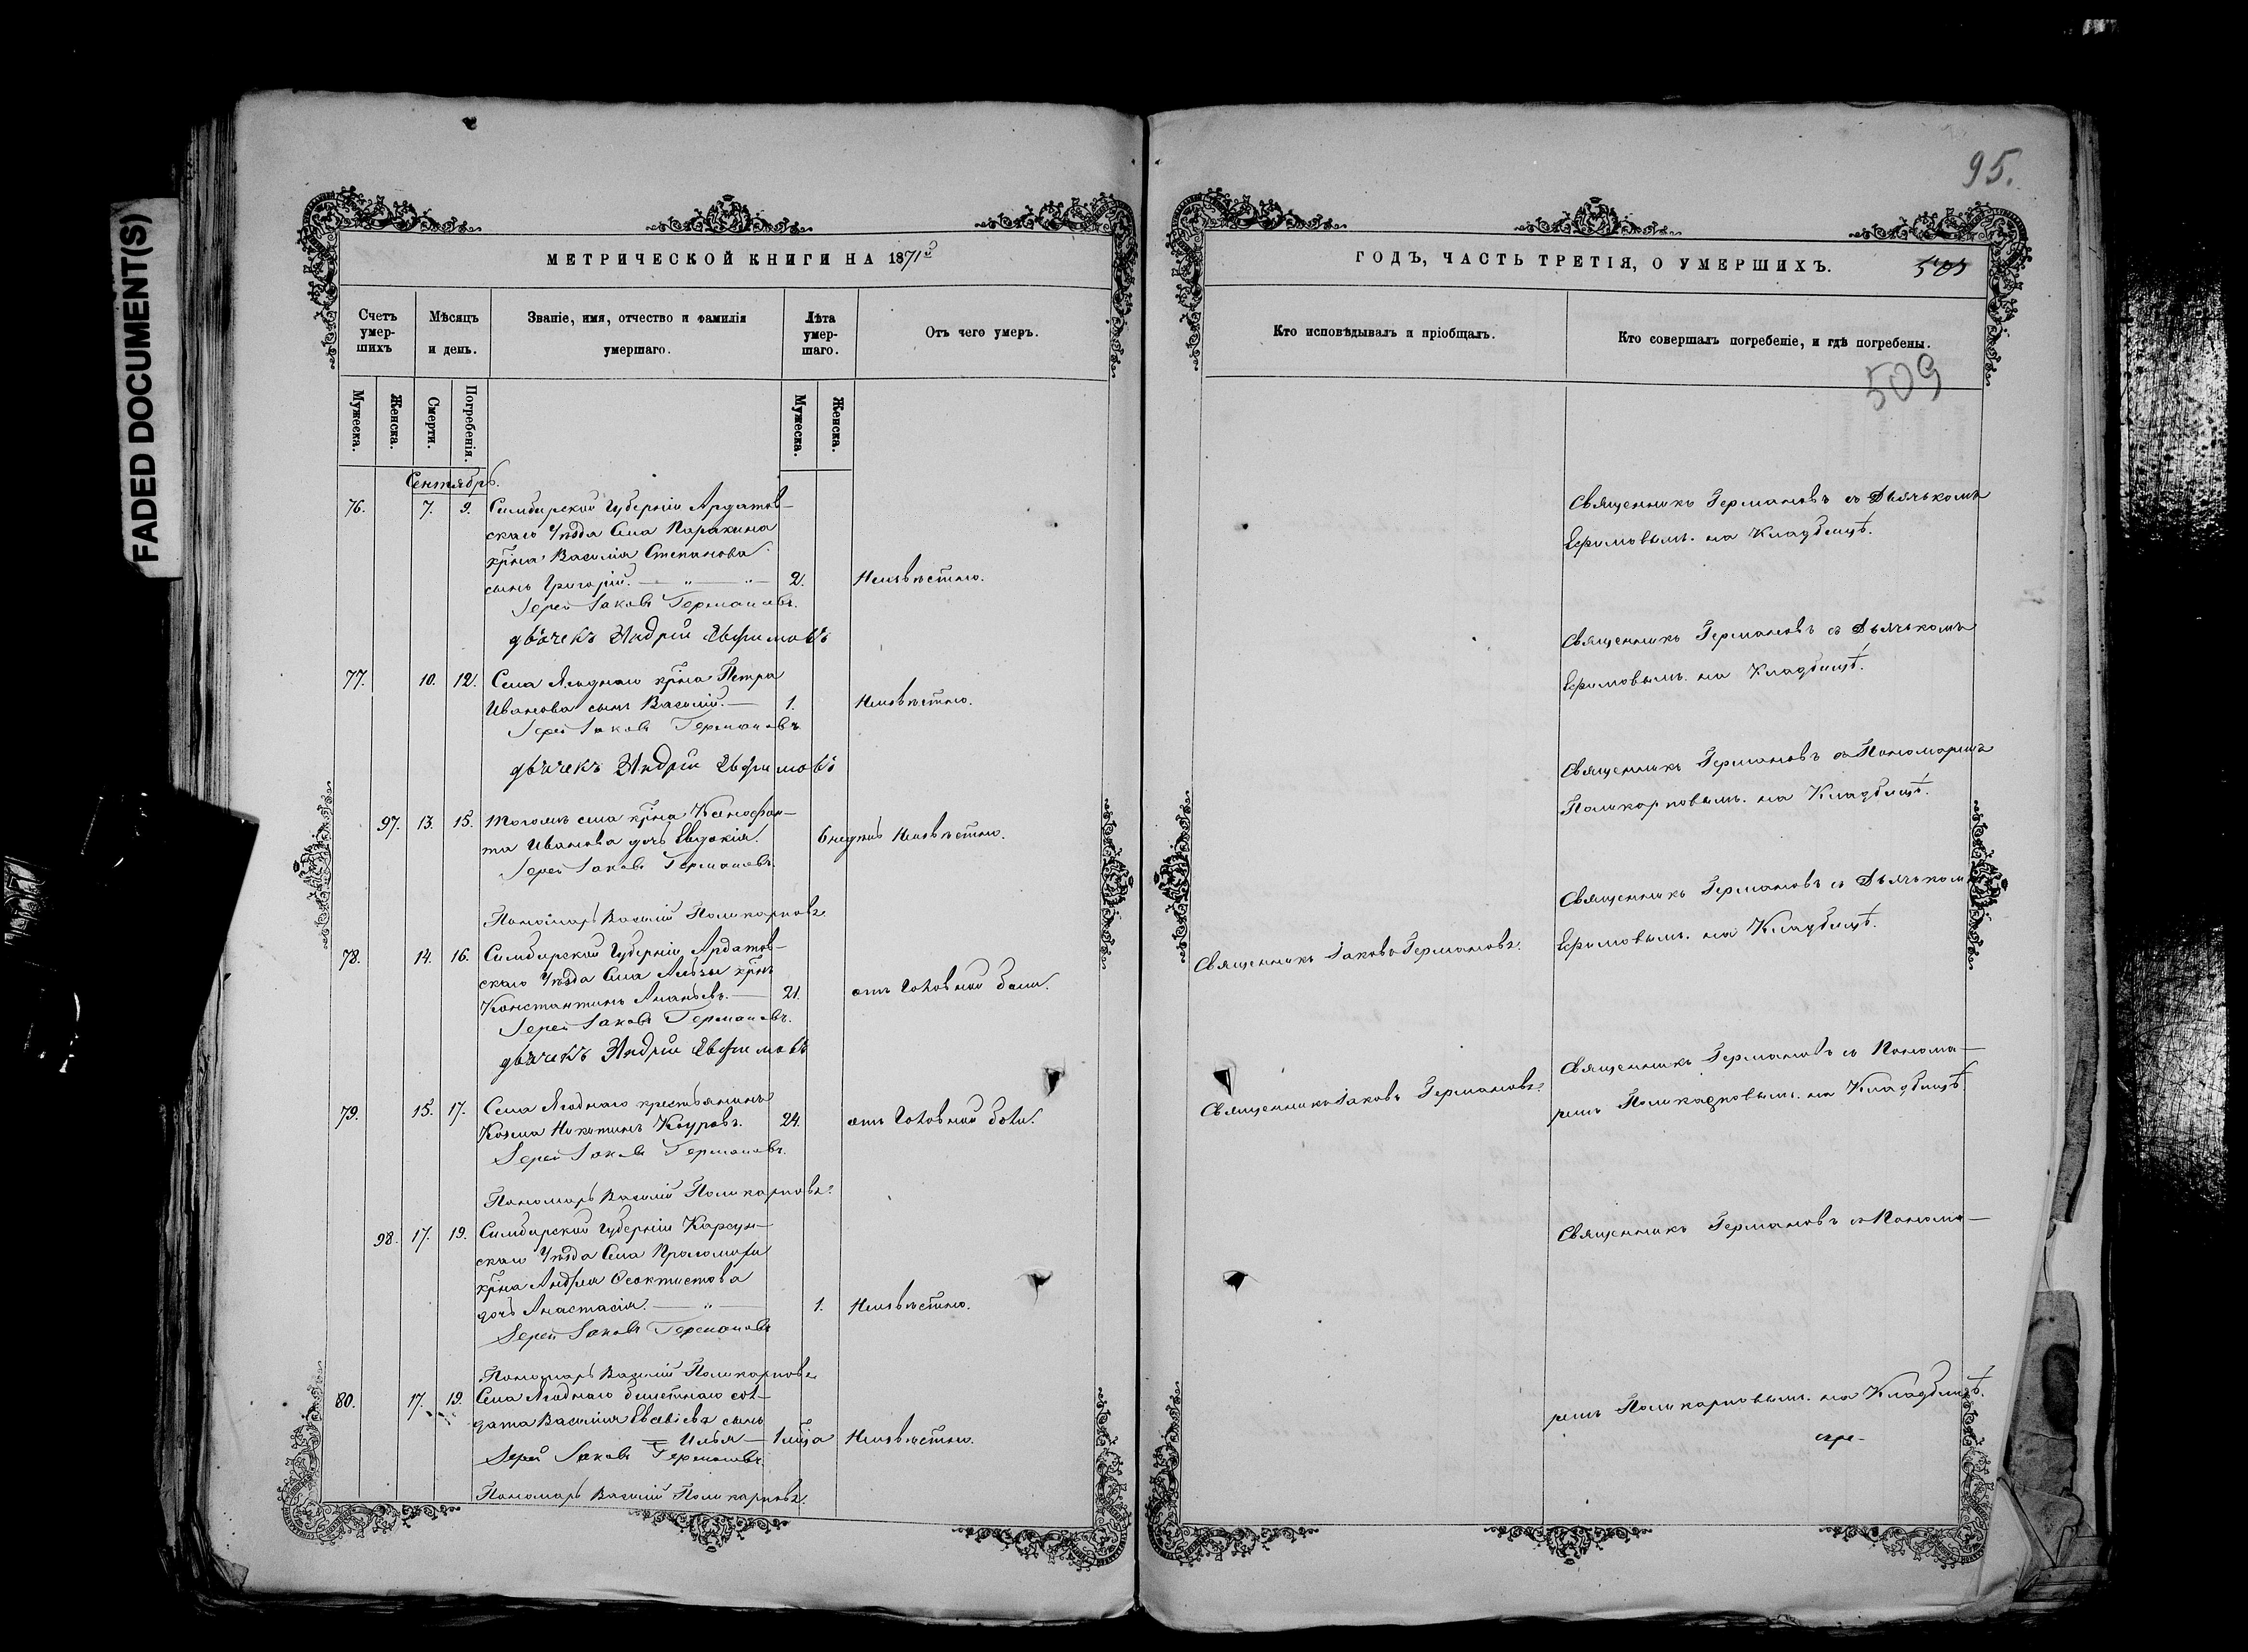 FADED DOCUMENT(S)
95.
МЕТРИЧЕСКОЙ КНИГИ НА 1871й
Счетъ умер-шихъ
Мѣсяцъ и день.
Званіе, имя, отчество и фамилія умершаго.
Лѣта умер-шаго.
Отъ чего умеръ.
Мужеска.
Женска.
Смерти.
Погребенія.
Мужеска.
Женска.
Сентябрь.
76. 7. 9. Симбирской Губерніи Ардатов-
скаго Уѣзда Села Паракина
крѣна Василія Степанова
сынъ Григорій. 2. Неизвѣстно.
Іерей Іаковъ Германовъ.
дьячекъ Андрей Евфимовъ
77. 10. 12. Села Ягоднаго крѣна Петра
Иванова сынъ Василій. 1. Неизвѣстно.
Іерей Іаковъ Германовъ
дьячекъ Андрей Евфимовъ
97. 13. 15. Тогожъ села крѣна Ксенофон-
та Иванова дочь Евдокія. 6 недѣль Неизвѣстно.
Іерей Іаковъ Германовъ
Пономарь Василій Поликарповъ
78. 14. 16. Симбирской Губерніи Ардатов-
скаго Уѣзда Села Алызы крѣнъ
Константинъ Ананьевъ. 21. отъ Головной боли.
Іерей Іаковъ Германовъ.
дьячекъ Андрей Евфимовъ
79. 15. 17. Села Ягоднаго крестьянинъ
Козма Никитинъ 24. отъ Головной боли.
Іерей Іаковъ Германовъ.
Пономарь Василій Поликарповъ.
98. 17. 19. Симбирской Губерніи Карсун-
скаго Уѣзда Села Проломихи
крѣна Андрея Ѳеоктистова
дочь Анастасія. 1. Неизвѣстно.
Іерей Іаковъ Германовъ
Пономарь Василій Поликарповъ
80. 17. 19. Села Ягоднаго билетнаго сол-
дата Василія Евсевіева сынъ
Илья 1 мѣца Неизвѣстно.
Іерей Іаковъ Германовъ
Пономарь Василій Поликарповъ.
ГОДЪ, ЧАСТЬ ТРЕТІЯ, О УМЕРШИХЪ.
505
Кто исповѣдывалъ и пріобщалъ.
Кто совершалъ погребеніе, и гдѣ погребены.
509
Священникъ Германовъ съ Дьячькомъ
Ефимовымъ. на Кладбищѣ.
Священникъ Германовъ съ Дьячькомъ
Ефимовымъ. на Кладбищѣ.
Священникъ Германовъ съ Пономаремъ
Поликарповымъ. на Кладбищѣ.
Священникъ Іаковъ Германовъ.
Священникъ Германовъ съ Дьячькомъ
Ефимовымъ. на Кладбищѣ.
Священникъ Іаковъ Германовъ.
Священникъ Германовъ съ Понома-
ремъ Поликарповымъ. на Кладбищѣ.
Священникъ Германовъ съ Понома-
ремъ Поликарповымъ. на Кладбищѣ.